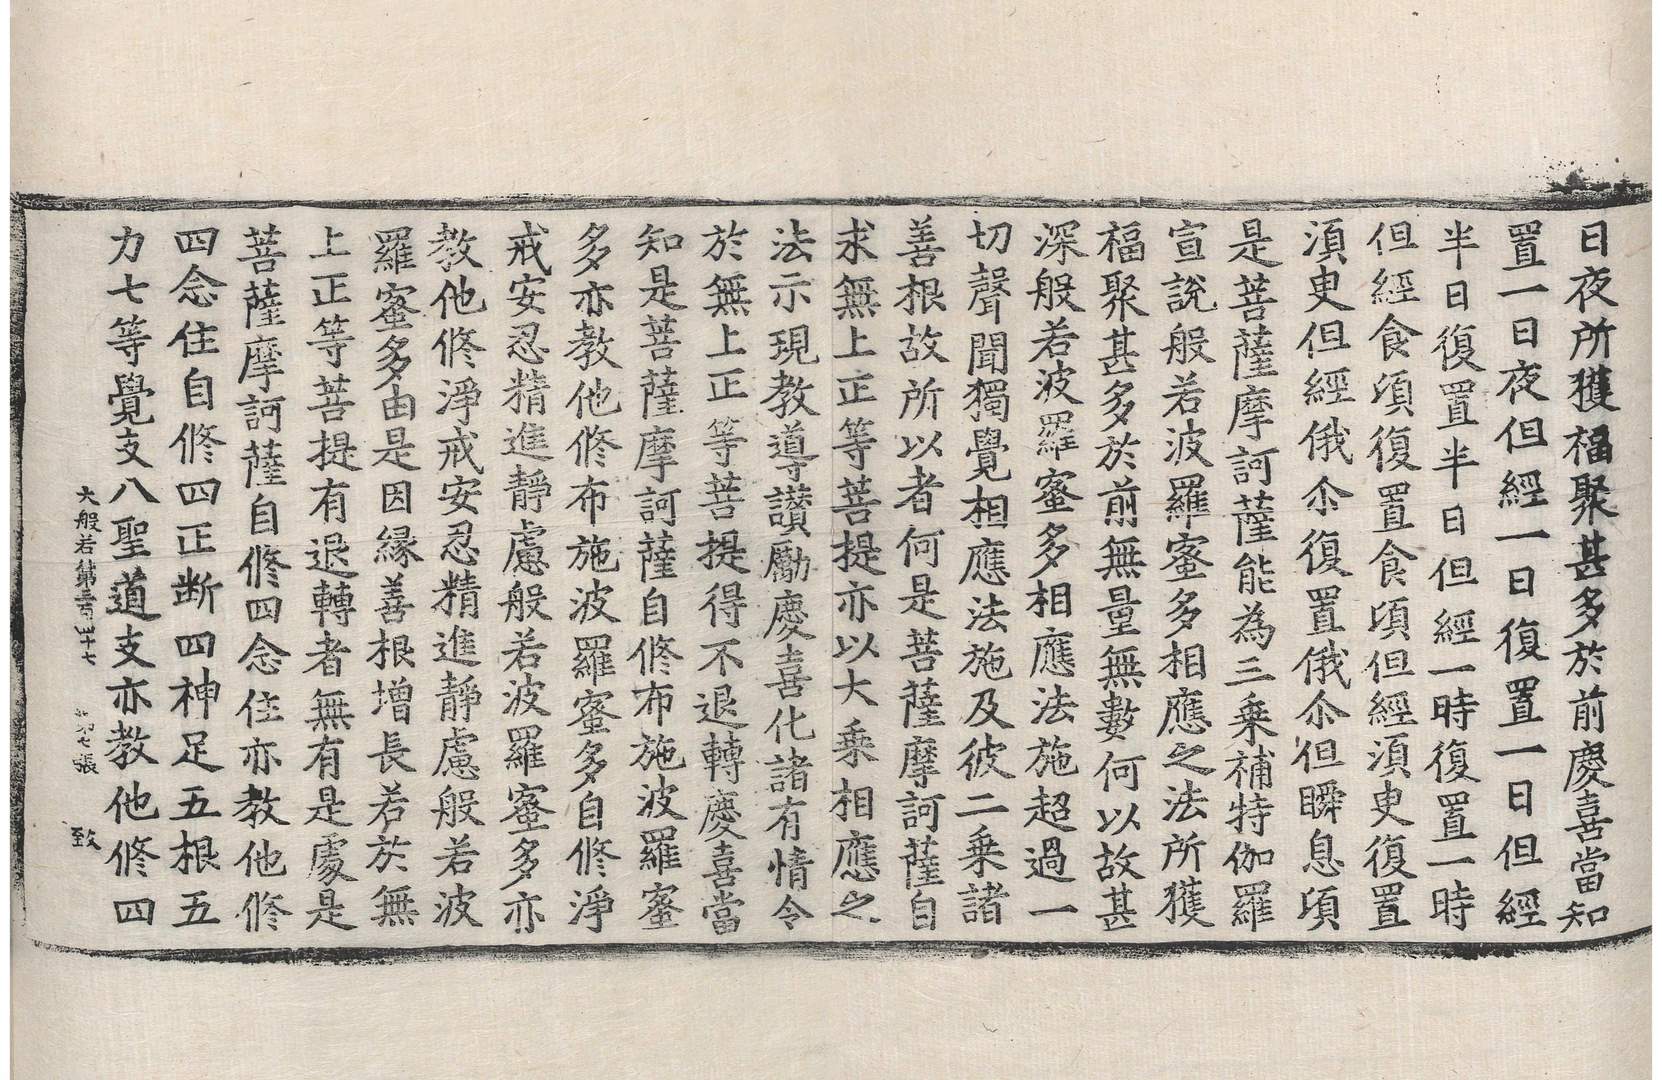 日夜所獲福聚甚多於前慶喜當知
置一日夜但經一日復置一日但經
半日復置半日但經一時復置一時
但經食頃復置食頃但經湏臾復置
湏臾但經俄尒復置俄尒但瞬息頃
是菩薩摩訶薩能為三乘補特伽羅
宣說般若波羅蜜多相應之法所獲
福聚甚多於前無量無數何以故甚
深般若波羅蜜多相應法施超過一
切聲聞獨覺相應法施及彼二乘諸
善根故所以者何是菩薩摩訶薩自
求無上正等菩提亦以大乘相應之
法示現教導讃勵慶喜化諸有情令
於無上正等菩提得不退轉慶喜當
知是菩薩摩訶薩自修布施波羅蜜
多亦教他修布施波羅蜜多自修淨
戒安忍精進靜慮般若波羅蜜多亦
教他修淨戒安忍精進靜慮般若波
羅蜜多由是因緣善根增長若於無
上正等菩提有退轉者無有是處是
菩薩摩訶薩自修四念住亦教他修
四念住自修四正断四神足五根五
力七等覺支八聖道支亦教他修四
大般若第三百四十七 七張 致